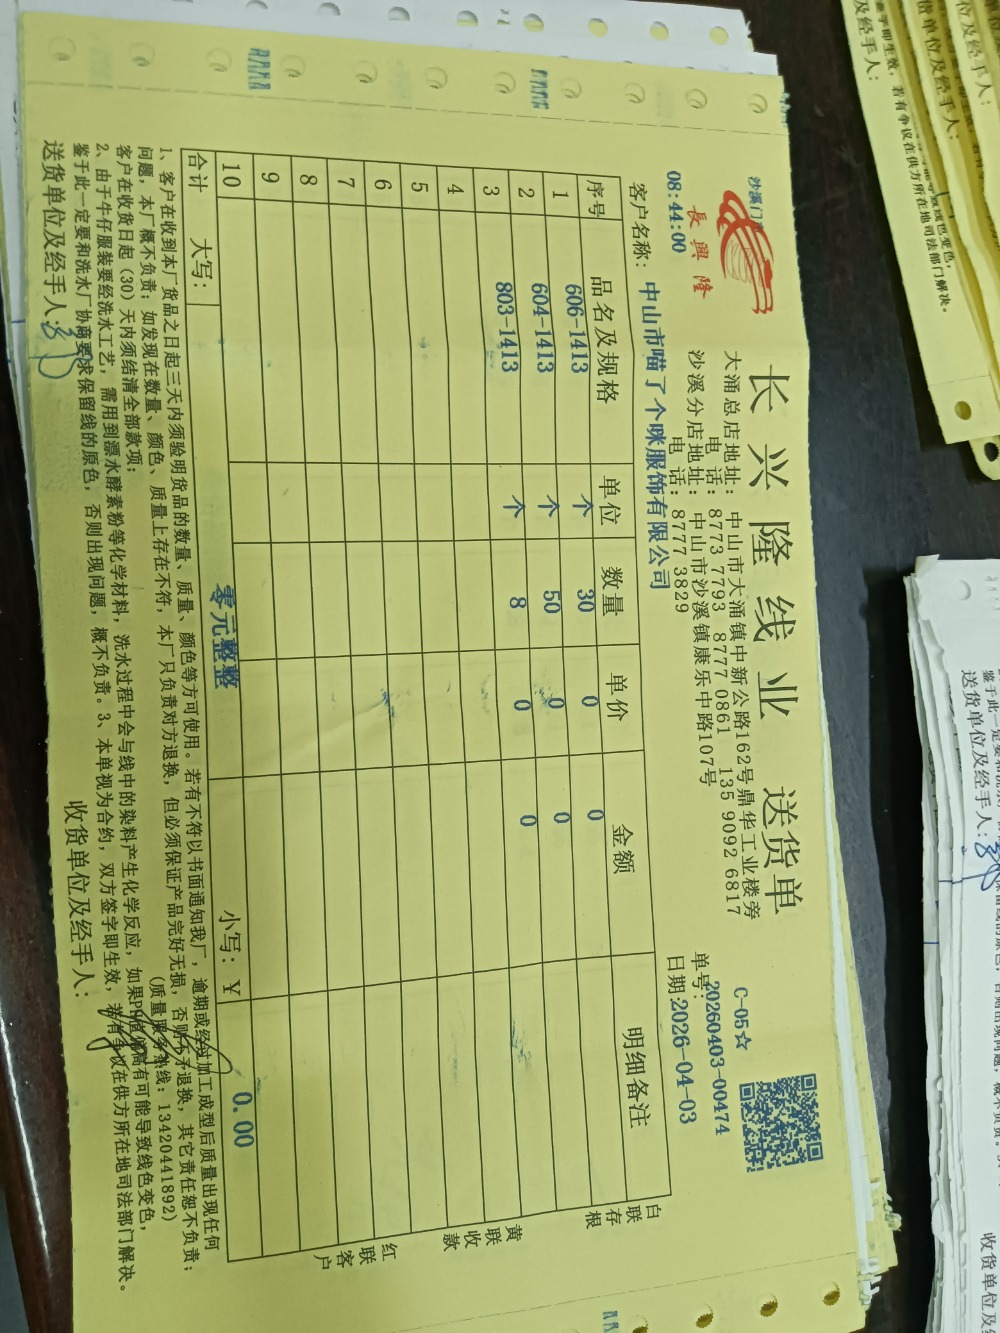 沙溪门
長興隆
08:44:00
长兴隆线业 送货单
大涌总店地址：中山市大涌镇中新公路162号鼎华工业楼旁
电话：8773 7793 8777 0861 135 9092 6817
沙溪分店地址：中山市沙溪镇康乐中路107号
电话：8777 3829
C-05☆
单号：20260403-00474
日期：2026-04-03
客户名称：中山市喵了个咪服饰有限公司
序号 品名及规格 单位 数量 单价 金额 明细备注
1 606-1413 个 30 0 0
2 604-1413 个 50 0 0
3 803-1413 个 8 0 0
4
5
6
7
8
9
10
合计 大写： 零元整整 小写：￥ 0.00
白联存根
黄联收款
红联客户
1、客户在收到本厂货品之日起三天内须验明货品的数量、质量、颜色等方可使用。若有不符以书面通知我厂，逾期或经过加工成型后质量出现任何
问题，本厂概不负责；如发现在数量、颜色、质量上存在不符，本厂只负责对方退换，但必须保证产品完好无损，否则不予退换，其它责任恕不负责；
客户在收货日起（30）天内须结清全部款项； （质量服务热线：13420441892）
2、由于牛仔服装要经洗水工艺，需用到漂水酵素粉等化学材料，洗水过程中会与线中的染料产生化学反应，如果PH值偏高有可能导致线色变色，
鉴于此一定要和洗水厂协商要求保留线的原色，否则出现问题，概不负责。3、本单视为合约，双方签字即生效，若有争议在供方所在地司法部门解决。
送货单位及经手人： 收货单位及经手人：
即生效，若有争议在供方所在地司法部门解决。
及经手人：
货单位及经手人：
位及经手人：
鉴于此一定要和洗水
送货单位及经手人：
收货单位及经